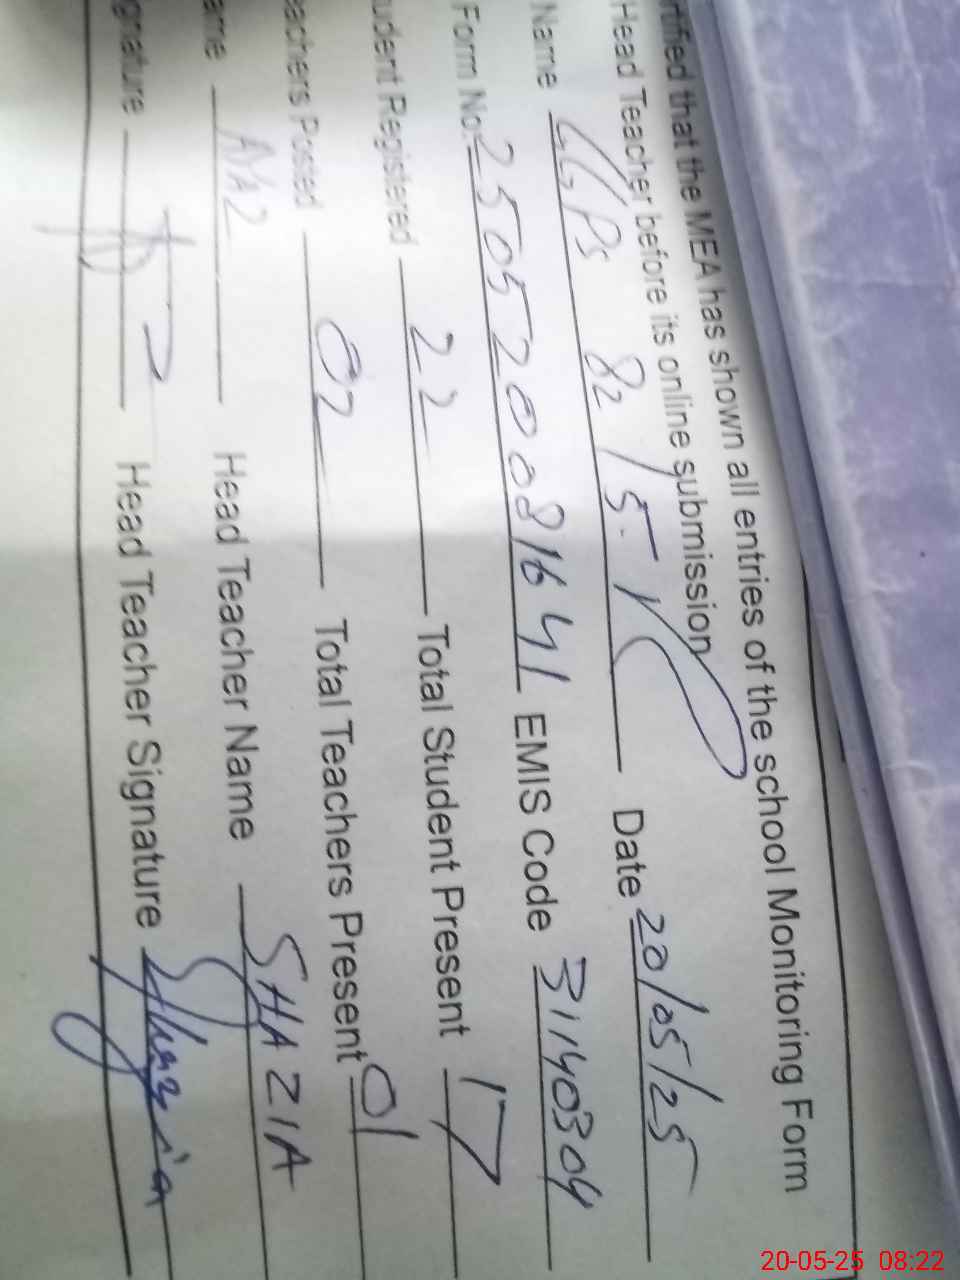 rtified that the MEA has shown all entries of the school Monitoring Form
Head Teacher before its online submission
Name GGPS 82/5.R Date 20/05/25
Form No: 25052008 16 41 EMIS Code 31140304
udent Registered 22 Total Student Present 17
eachers Posted 02 Total Teachers Present 01
ame Head Teacher Name SHAZIA
gnature Head Teacher Signature Shazia
20-05-25 08:22